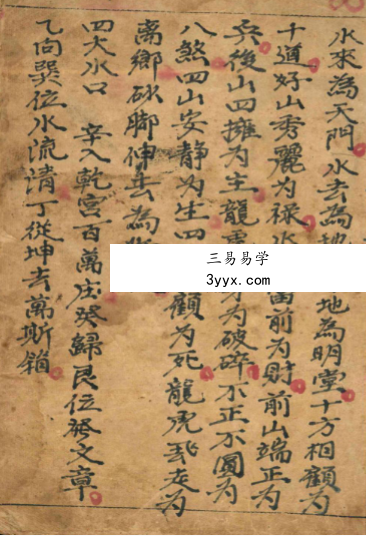 水來為天門水去為地 地為明堂十方相顧為
十道好山秀麗為祿水 當前為財前山端正為
兵後山四擁為主龍 為破碎不正不圓為
八煞四山安静為生四 顧為死龍虎 走為
离鄉砂脚伸去為
四大水口 辛入乾宮百萬庄癸歸艮位發文章
乙向巽位水流清丁從坤去萬斯箱
三易易学
3yyx.com